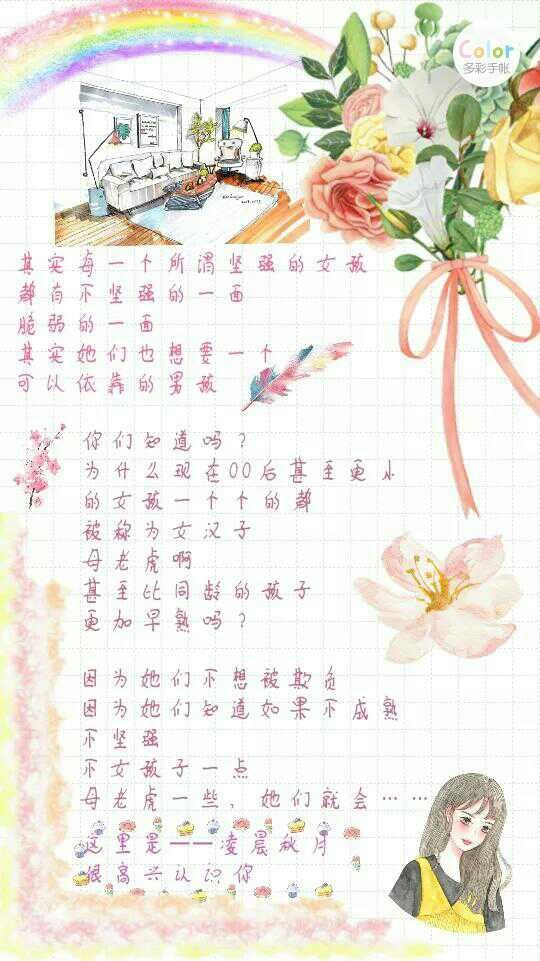 Color
多彩手帐
其实每一个所谓坚强的女孩
都有不坚强的一面
脆弱的一面
其实她们也想要一个
可以依靠的男孩
你们知道吗?
为什么现在00后甚至更小
的女孩一个个的都
被称为女汉子
母老虎啊
甚至比同龄的孩子
更加早熟吗?
因为她们不想被欺负
因为她们知道如果不成熟
不坚强
不女孩子一点
母老虎一些,她们就会……
这里是——凌晨秋月
很高兴认识你